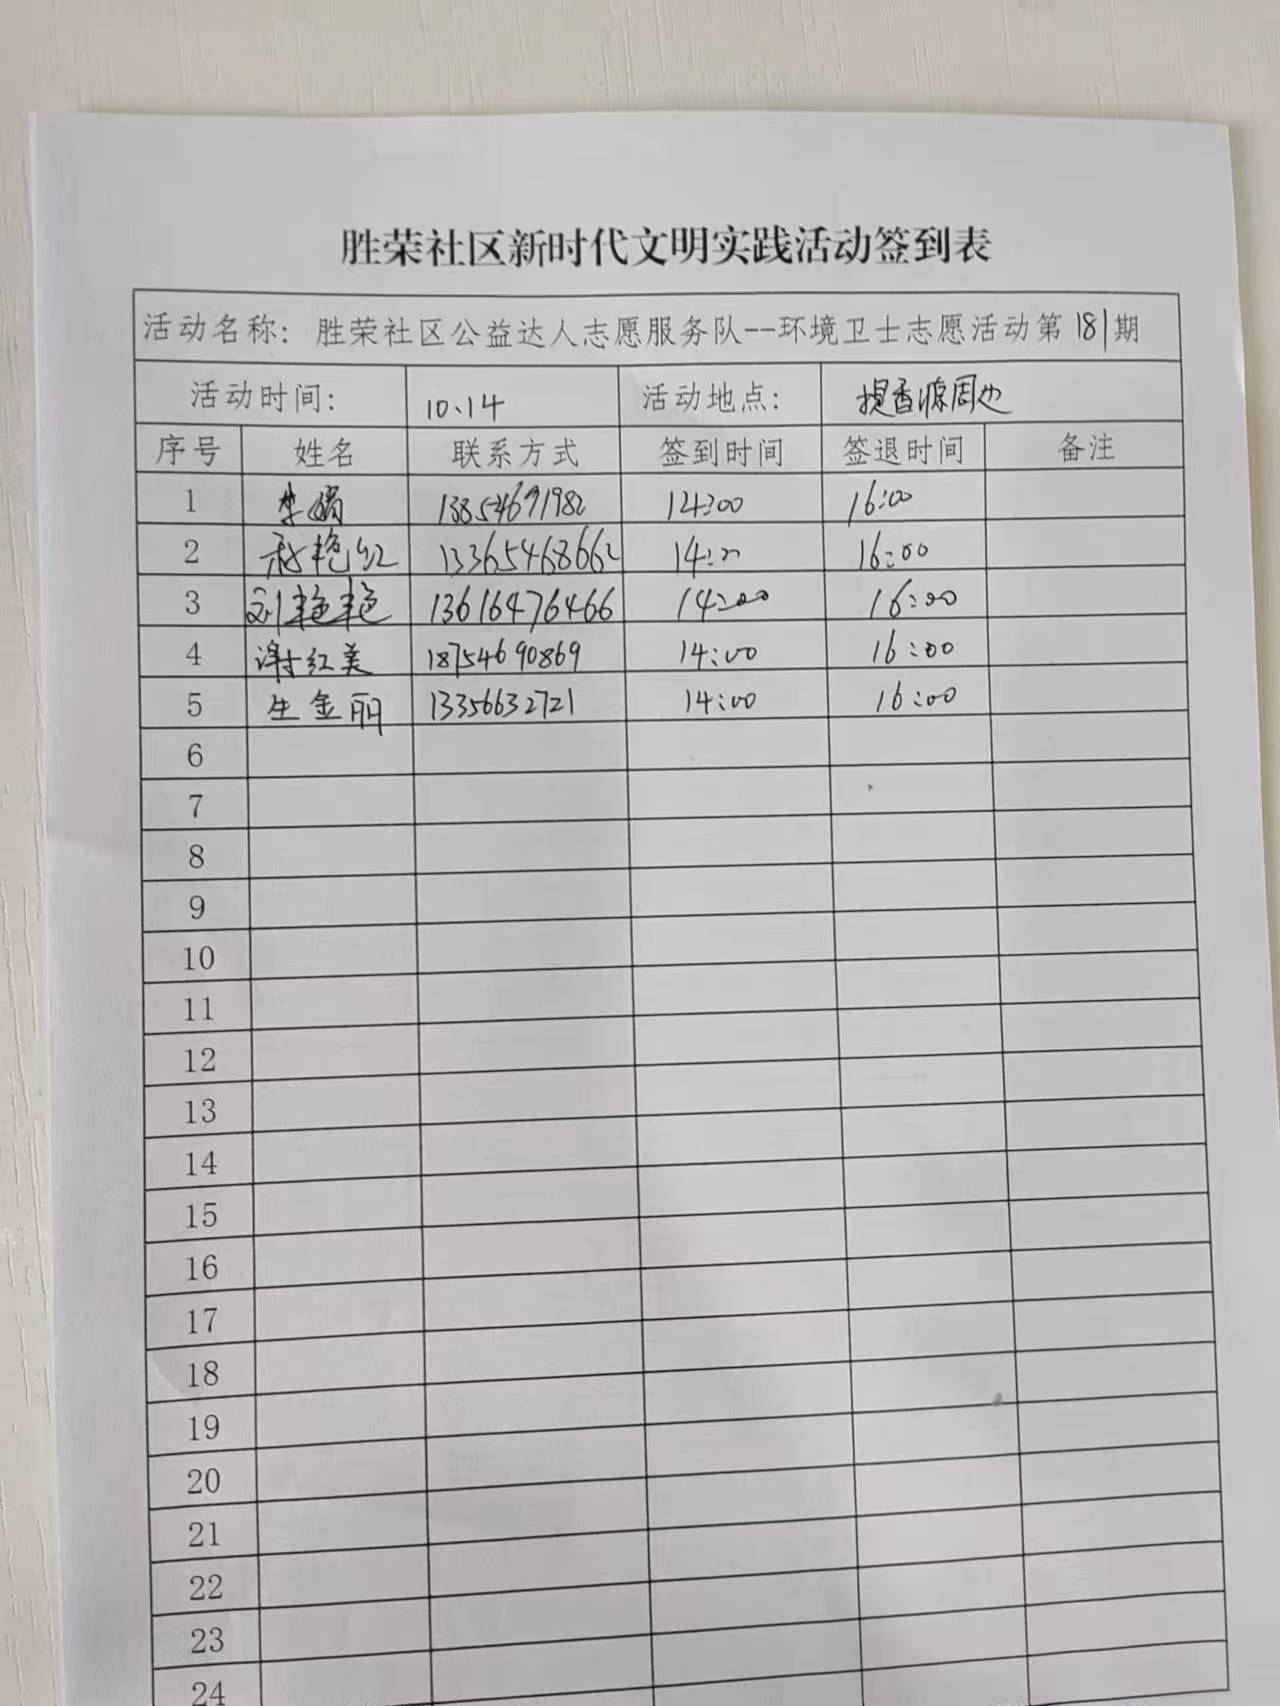 胜荣社区新时代文明实践活动签到表
活动名称：胜荣社区公益达人志愿服务队--环境卫士志愿活动第181期
活动时间： 10、14 活动地点： 香源周边
序号 姓名 联系方式 签到时间 签退时间 备注
1 李娟 13854691982 14:00 16:00
2 艳红 13365468662 14:00 16:00
3 刘艳艳 13616476466 14:00 16:00
4 谢红美 18754690869 14:00 16:00
5 生金丽 13356632721 14:00 16:00
6
7
8
9
10
11
12
13
14
15
16
17
18
19
20
21
22
23
24